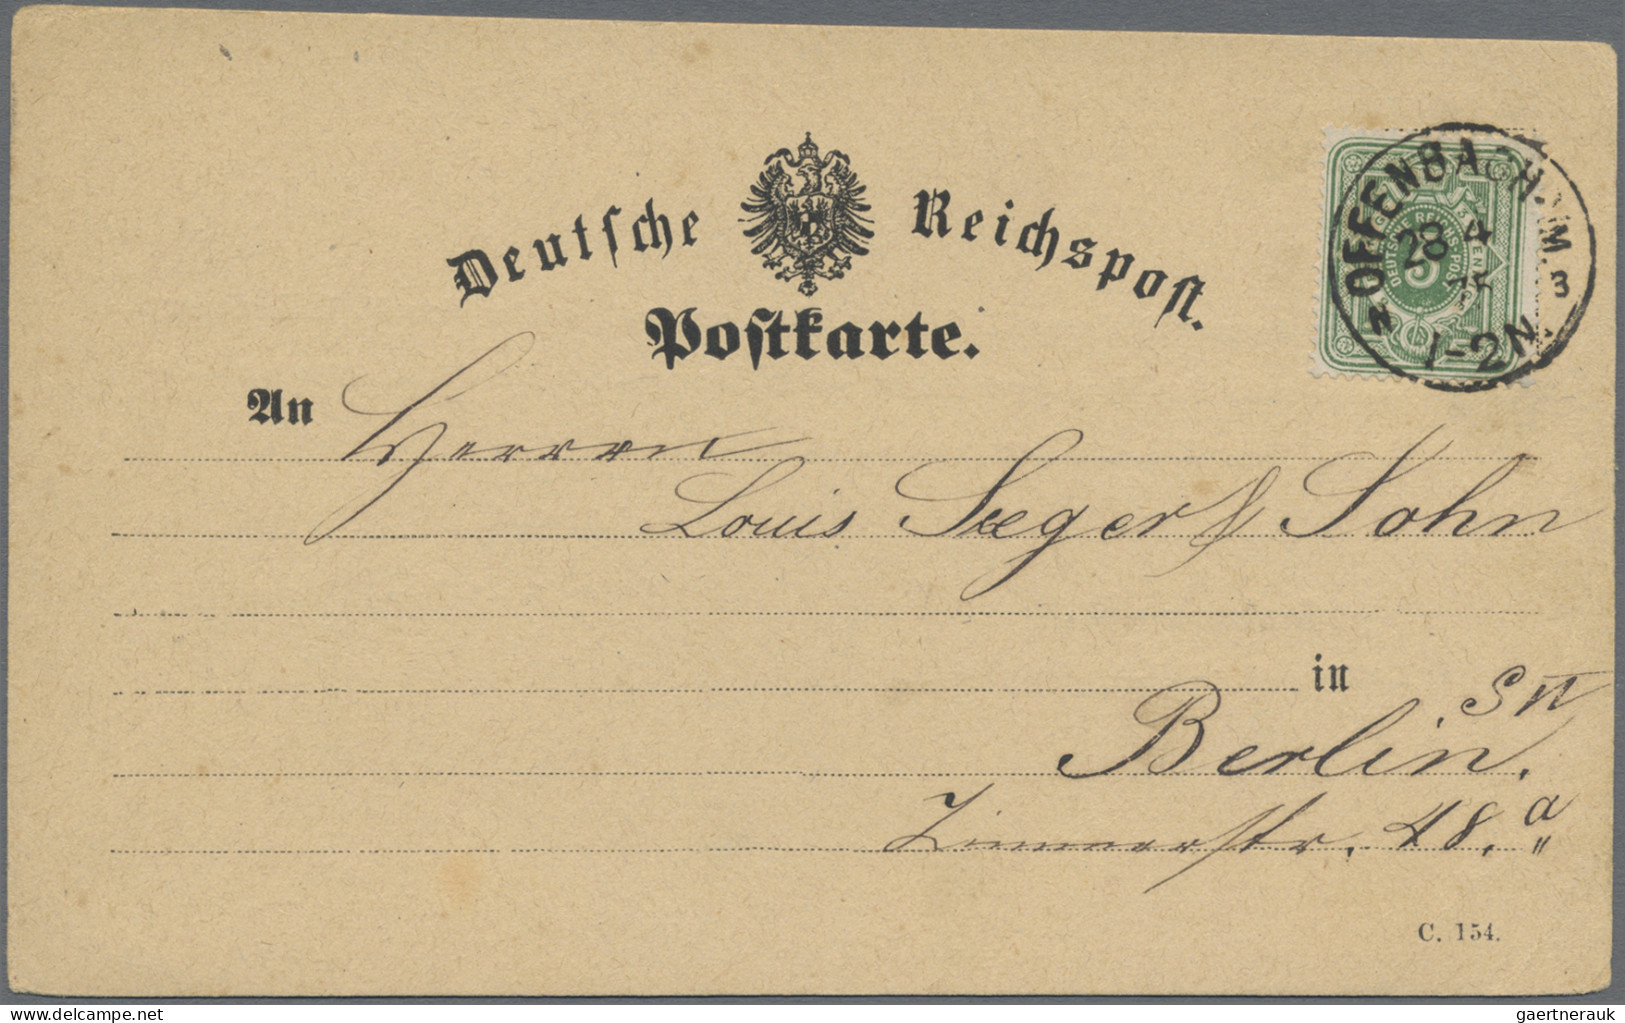 Deutsche Reichspost.
Postkarte.
OFFENBACH. M. 3
28 4
75
1-2 N.
3
DEUTSCHE REICHS-POST
An Herren
Louis Seeger & Sohn
in
Berlin. SW
Zimmerstr. 48. a
C. 154.
delcampe.net
gaertnerauk